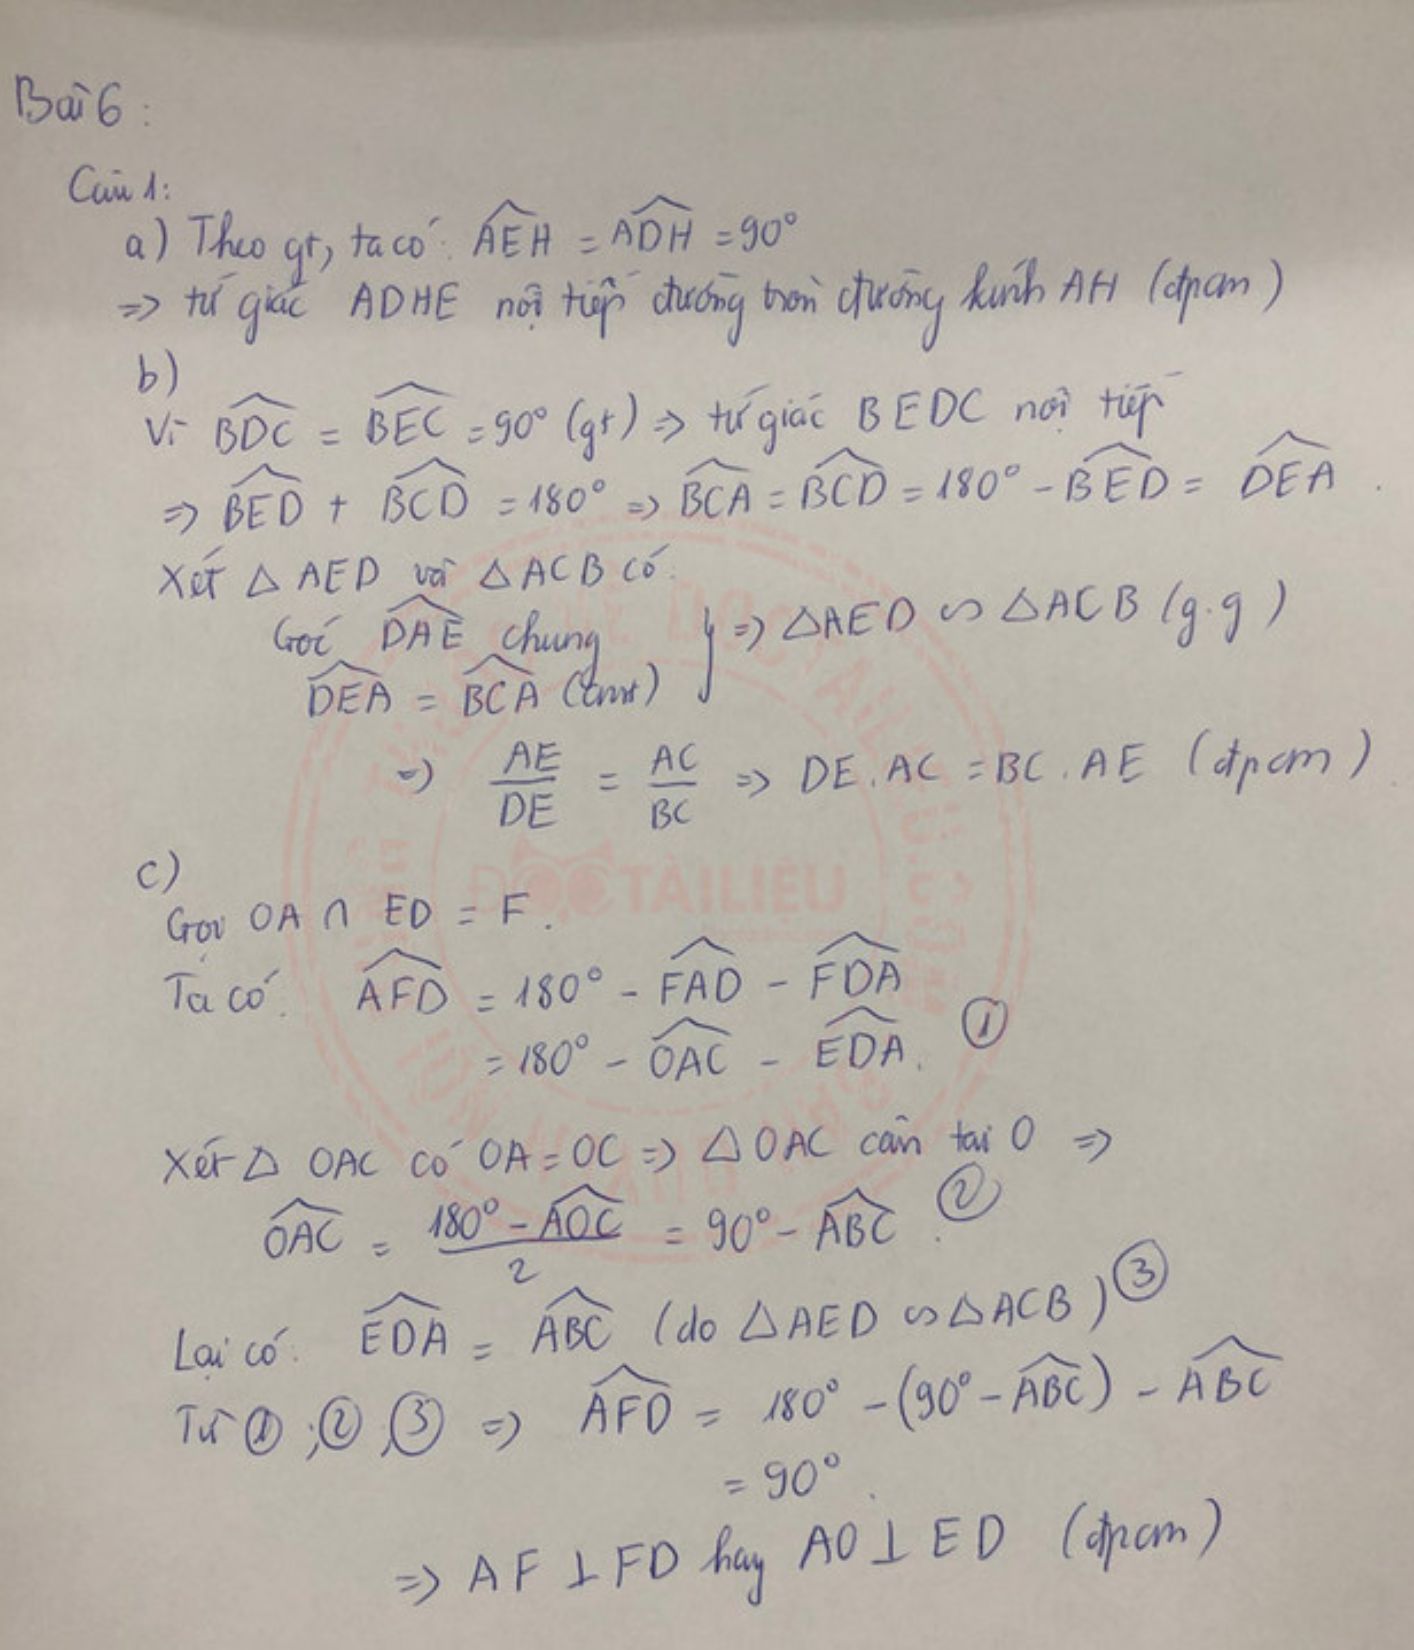 Bài 6:
Câu 1:
a) Theo gt, ta có: \widehat{AEH} = \widehat{ADH} = 90°
=> tứ giác ADHE nội tiếp đường tròn đường kính AH (đpcm)
b)
Vì \widehat{BDC} = \widehat{BEC} = 90° (gt) => tứ giác BEDC nội tiếp
=> \widehat{BED} + \widehat{BCD} = 180° => \widehat{BCA} = \widehat{BCD} = 180° - \widehat{BED} = \widehat{DEA}.
Xét △ AED và △ ACB có:
Góc \widehat{DAE} chung } => △AED ∽ △ACB (g.g)
\widehat{DEA} = \widehat{BCA} (cmt)
=> \frac{AE}{DE} = \frac{AC}{BC} => DE.AC = BC.AE (đpcm)
c)
Gọi OA ∩ ED = F.
Ta có: \widehat{AFD} = 180° - \widehat{FAD} - \widehat{FDA}
= 180° - \widehat{OAC} - \widehat{EDA}. ①
Xét △ OAC có OA = OC => △OAC cân tại O =>
\widehat{OAC} = \frac{180° - \widehat{AOC}}{2} = 90° - \widehat{ABC}. ②
Lại có: \widehat{EDA} = \widehat{ABC} (do △AED ∽ △ACB) ③
Từ ①;②;③ => \widehat{AFD} = 180° - (90° - \widehat{ABC}) - \widehat{ABC}
= 90°.
=> AF ⊥ FD hay AO ⊥ ED (đpcm)
ĐỌCTÀILIỆU